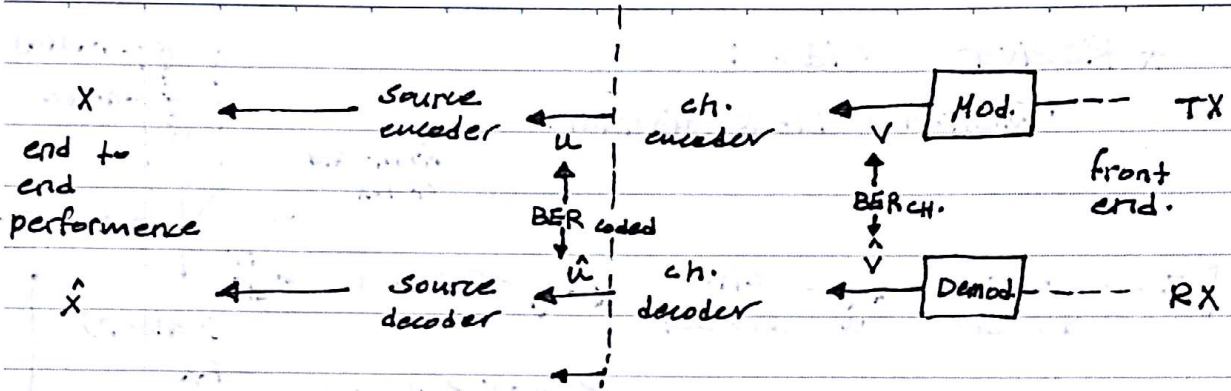 X
source
encoder
u
ch.
encoder
V
Mod.
TX
end to
end
performence
BER coded
BER CH.
front
end.
X̂
source
decoder
û
ch.
decoder
V̂
Demod
RX